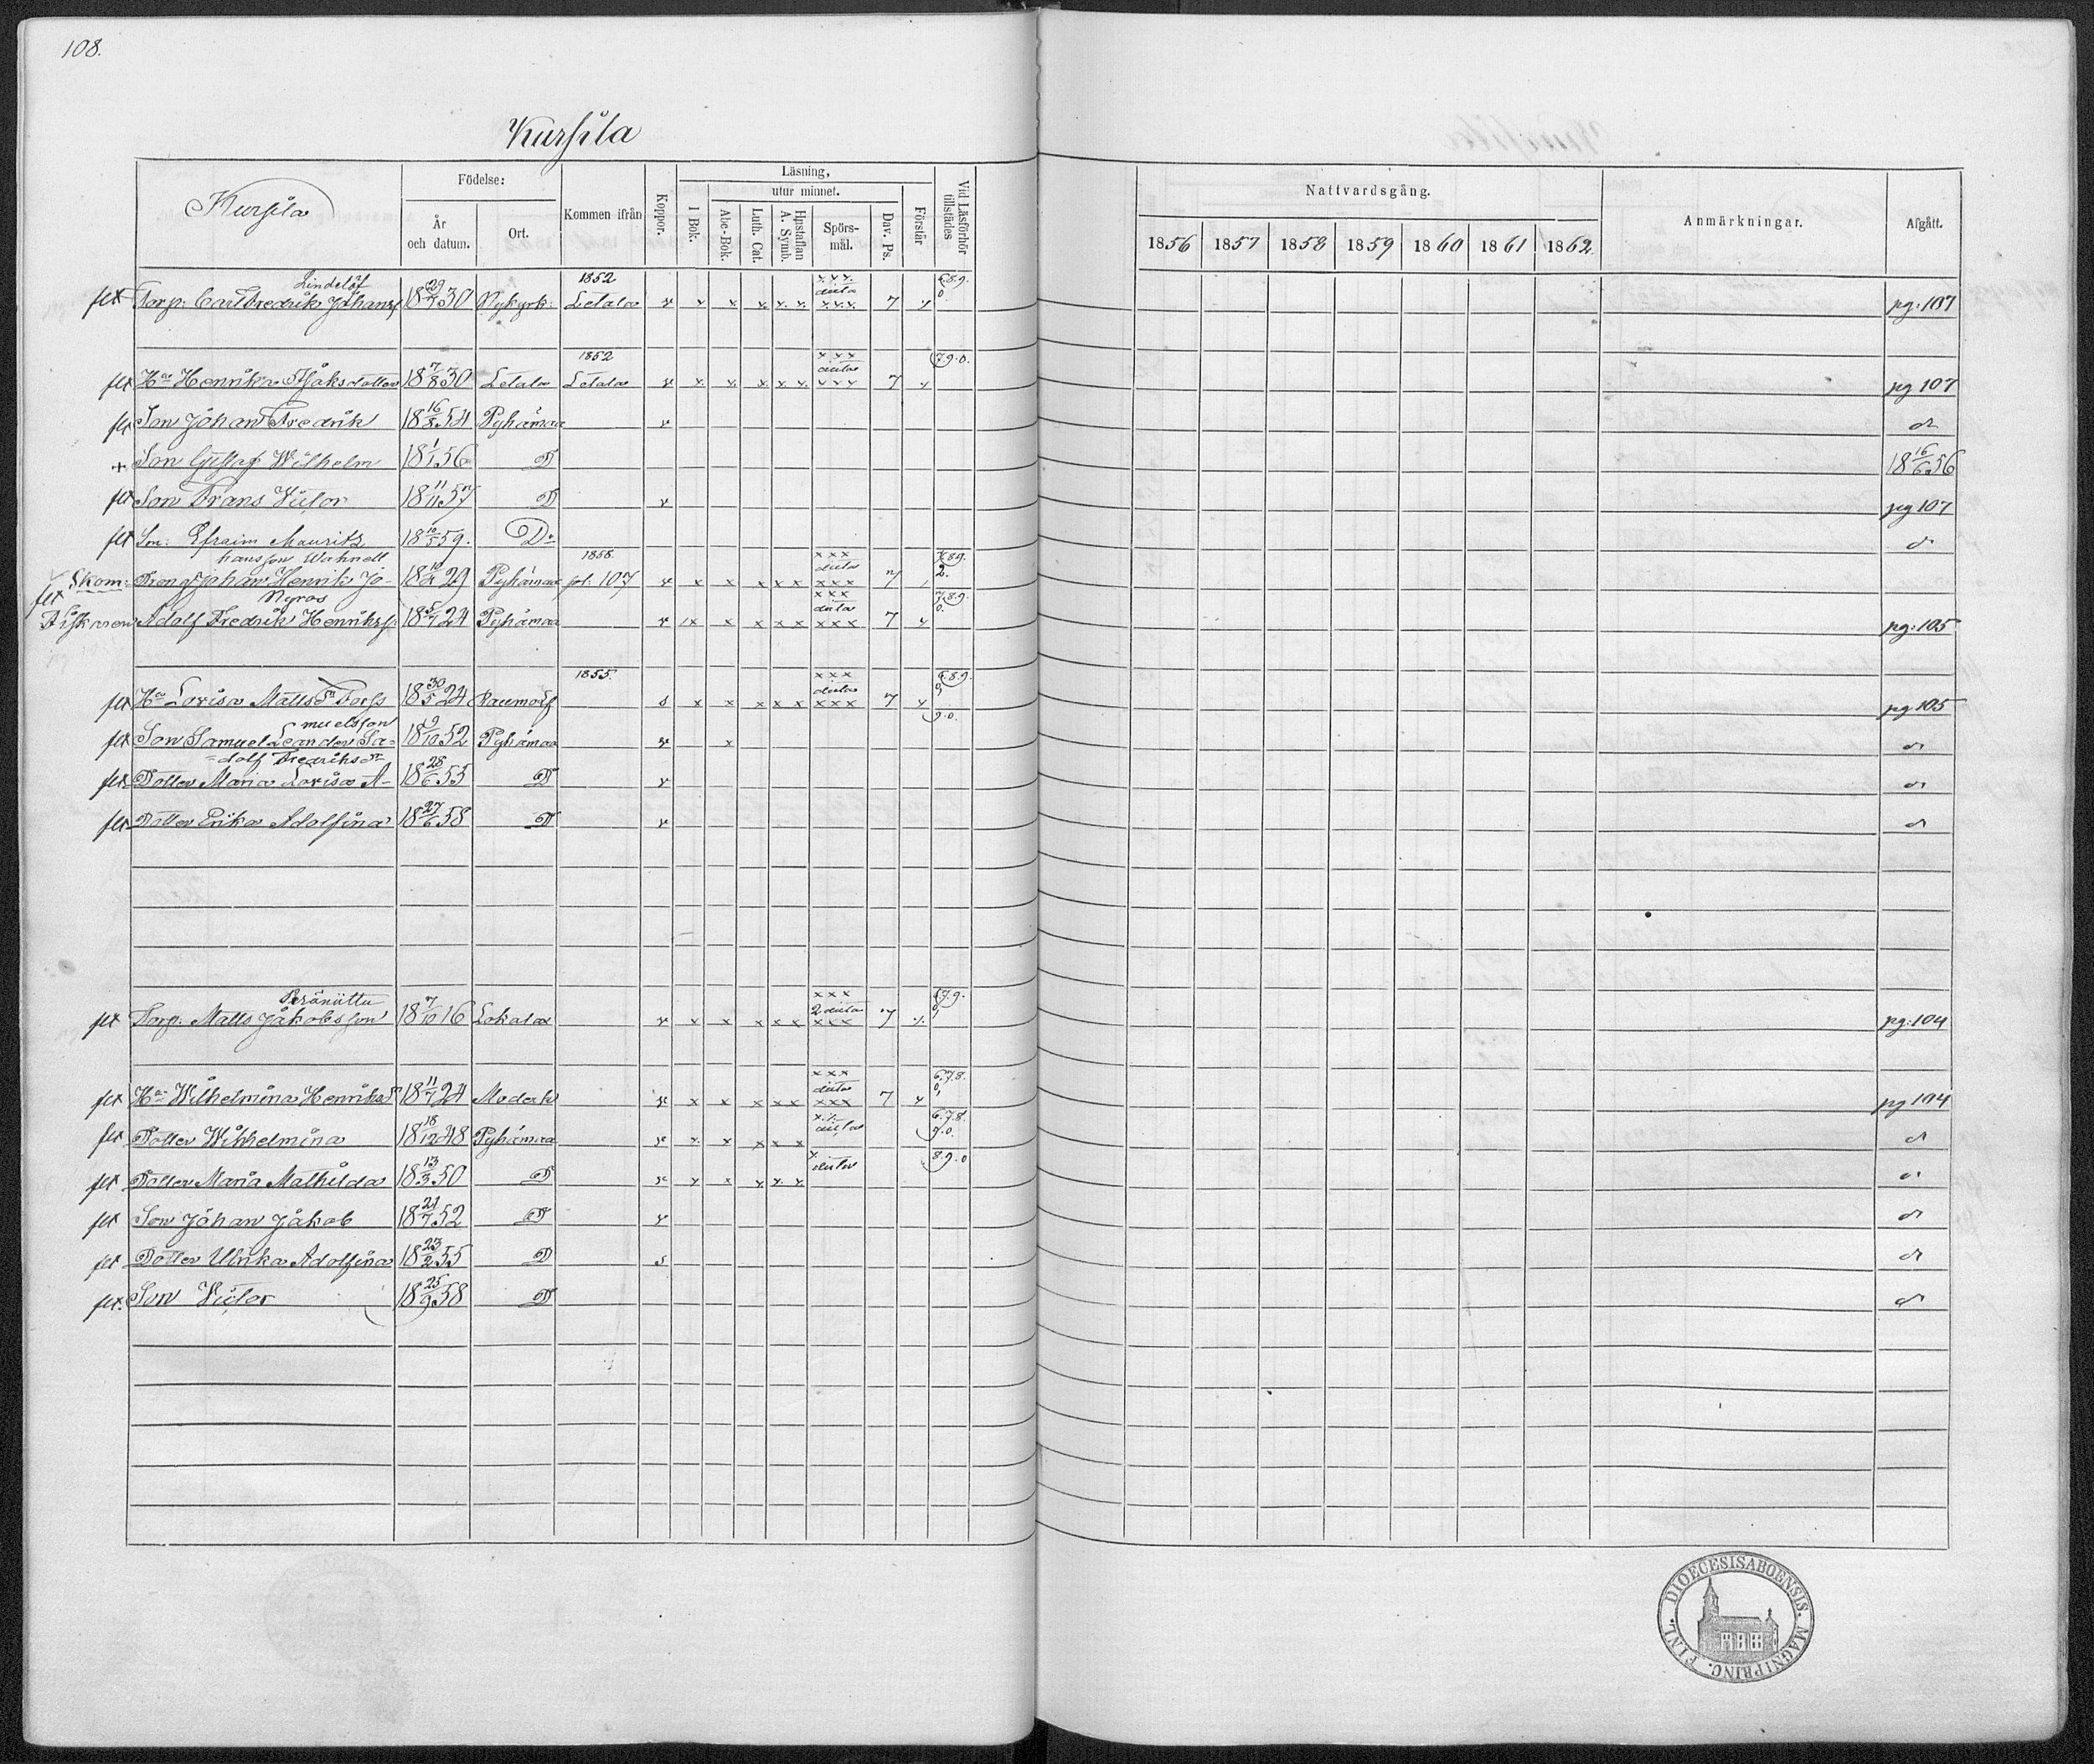 108.
Kursila
Kursila
Födelse:
År och datum.
Ort.
Kommen ifrån
Koppor.
Läsning,
I Bok.
utur minnet.
Abc-Bok.
Luth. Cat.
Hustaflan A. Symb.
Spörs-mål.
Dav. Ps.
Förstår
Vid Läsförhör tillstädes
Nattvardsgång.
1856 1857 1858 1859 1860 1861 1862
Anmärkningar.
Afgått.
Lindelöf 1852 x x x 6.8.9.
flt Torp: Carl Fredrik Johans 18 29/4 30 Nykyrk: Letala x x x x x x x x x 7 x 0 pg: 107
1852 x x x 7.9.0.
flt Ha Henrika 18 7/8 30 Letala Letala x x x x x x x x x 7 x pg 107
flt Son Johan Fredrik 18 16/8 54 Pyhämaa x d
+ Son Gustaf Wilhelm 18 1/1 56 D 18 16/6 56
flt Son Frans Victor 18 11/11 57 D x pg 107
flt Son: Efraim Mauritz 18 10/5 59. Do d
hansson Wahnell 1858. x x x 7.8.9.
Skom: Dreng Johan Henrik Jo- 18 10/4 29 Pyhämaa pl: 107 x x x x x x x x x 7 2.
flt Nyroos x x x 7.8.9.
Fiskaren Adolf Fredrik Henrikss 18 5/7 24 Pyhämaa x x x x x x x x x 7 x 0. pg: 105
1855. x x x 6.8.9.
flt Ha Lovisa Matts Dr Forss 18 30/5 24 Raumo s x x x x x x x x 7 x 9 pg 105
muelsson 9.0.
flt Son Samuel Leander Sa- 18 9/10 52 Pyhämaa x x d
dolf Fredriks Dr
flt Dotter Maria Lovisa A- 18 28/6 55 D x d
flt Dotter Erika Adolfina 18 27/6 58 D x d
Keräniittu x x x 6.7.9.
flt Torp. Matts Jakobsson 18 7/10 16 Lokalax x x x x x x x x x 7 x 9 pg: 104
x x x 6.7.8.
flt Ha Wilhelmina Henriks Dr 18 11/7 24 x x x x x x x x x 7 x 0, pg 104
x x 6.7.8.
flt Dotter Wilhelmina 18 18/12 48 Pyhämaa x x x x x x 9.0. d
x 8.9.0
flt Dotter Maria Mathilda 18 13/3 50 D x x x x x x d
flt Son Johan Jakob 18 21/7 52 D x d
flt Dotter Ulrika Adolfina 18 23/2 55 D s d
flt. Son Victor 18 25/9 58 D d
DIOECESIS ABOENSIS. MAGNI PRINC. FINL.